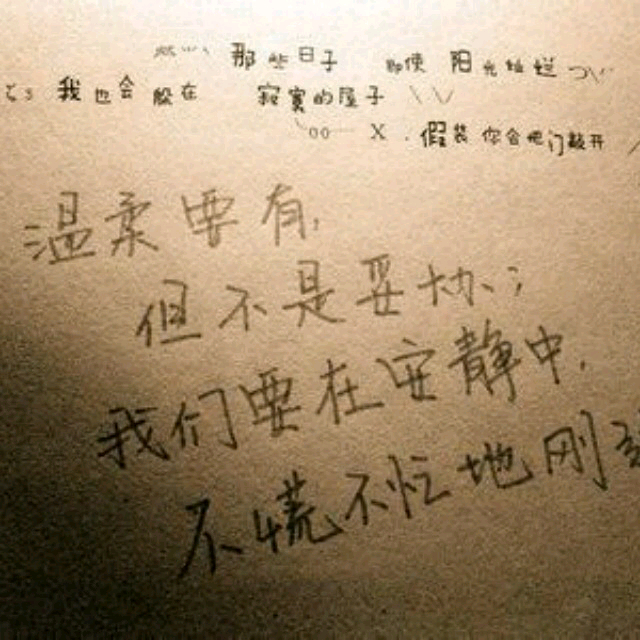 那些日子 即使 阳光灿烂
我也会 躲在 寂寞的屋子
X 假装你会他们敲开
温柔要有,
但不是妥协;
我们要在安静中,
不慌不忙地刚强